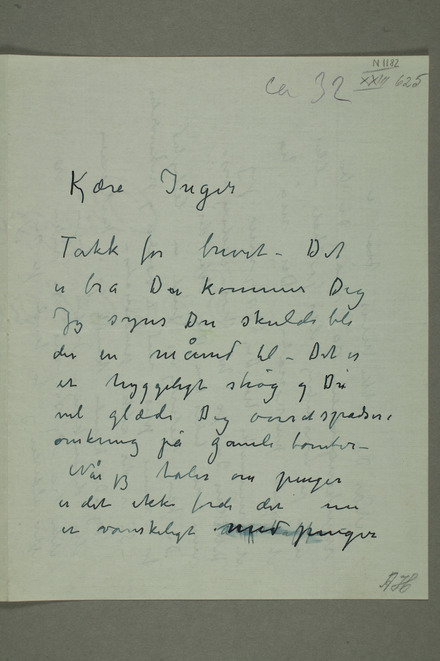 N 1182
ca 32 XXIII 625
Kjære Inger
Takk for brevet – Det
er bra Du kommer Dig
Jeg synes Du skulde bli
der en måned til – Det er
et hyggeligt strøg og Du
vil glæde Dig ved at spadsere
omkring på gamle tomter –
Når jeg taler om penger
er det ikke fordi det nu
er vanskeligt med penger
ÅH